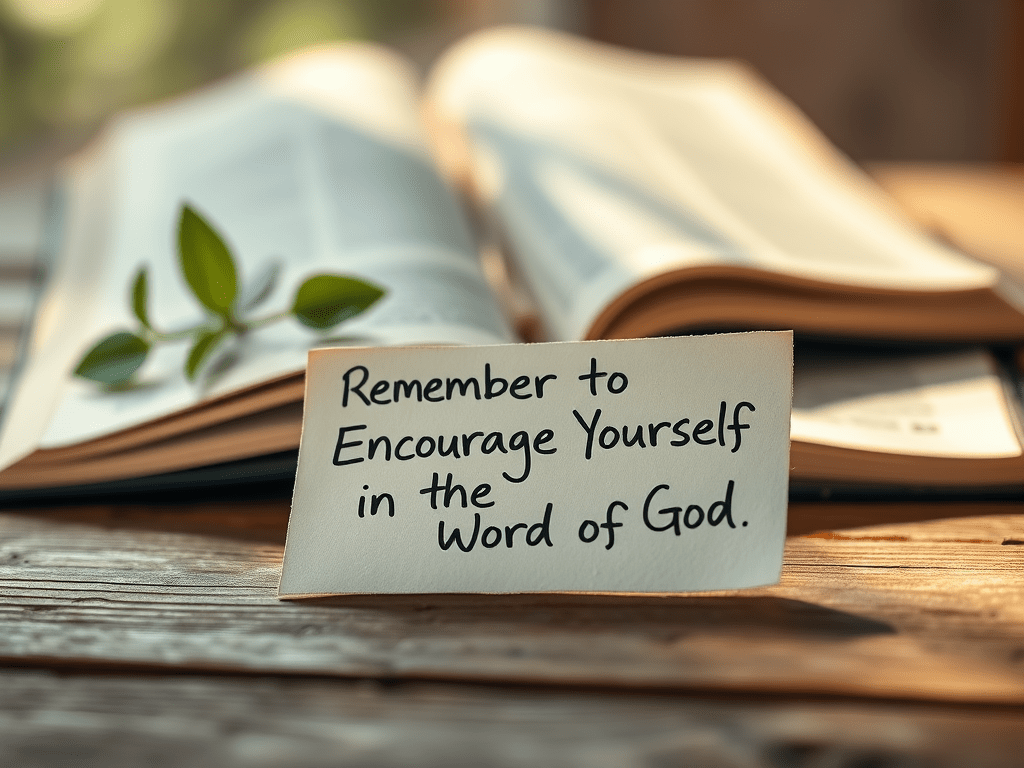 Remember to
Encourage Yourself
in the
Word of God.